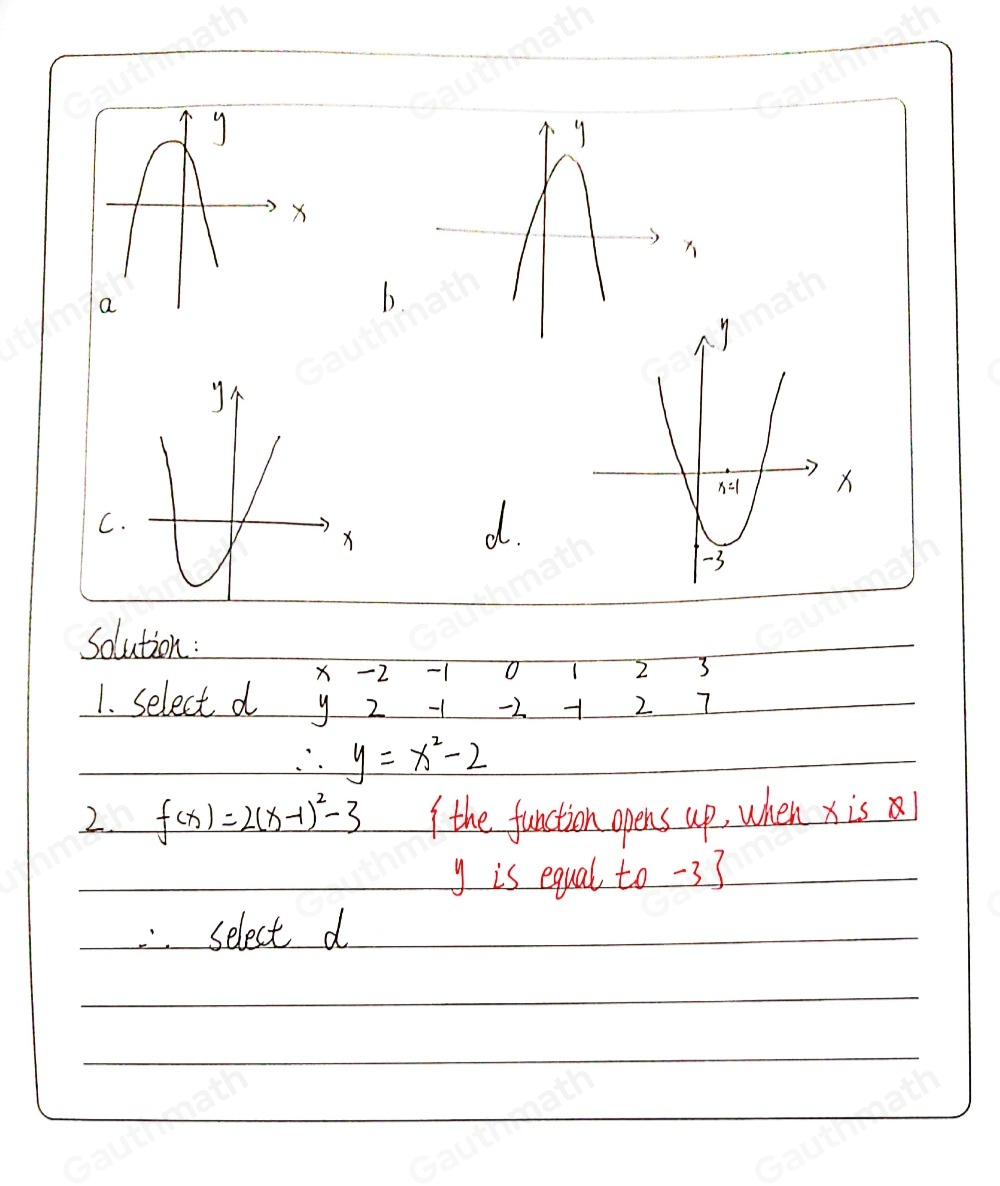 y
x
a
y
x
b.
y
x
c.
y
x
x=1
-3
d.
Solution:
x -2 -1 0 1 2 3
1. select d y 2 -1 -2 -1 2 7
∴ y = x²-2
2. f(x)=2(x-1)²-3 {the function opens up, when x is 1
y is equal to -3}
∴ select d
Gauthmath